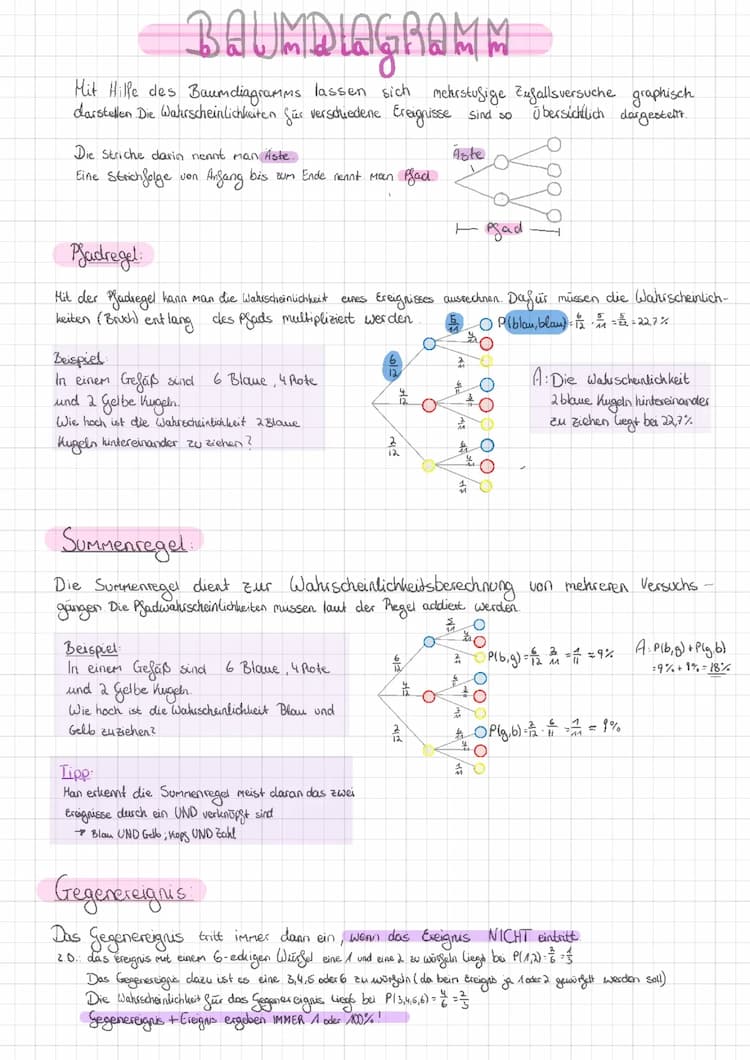 BAUMDIAGRAMM
Mit Hilfe des Baumdiagramms lassen sich mehrstufige Zufallsversuche graphisch
darstellen. Die Wahrscheinlichkeiten für verschiedene Ereignisse sind so übersichtlich dargestellt.
Die Striche darin nennt man Äste.
Eine Strichfolge von Anfang bis zum Ende nennt man Pfad
Äste
Pfad
Pfadregel:
Mit der Pfadregel kann man die Wahrscheinlichkeit eines Ereignisses ausrechnen. Dafür müssen die Wahrscheinlich-
keiten (Bruch) entlang des Pfads multipliziert werden.
Beispiel:
In einem Gefäß sind 6 Blaue, 4 Rote
und 2 Gelbe Kugeln.
Wie hoch ist die Wahrscheinlichkeit 2 Blaue
Kugeln hintereinander zu ziehen?
6/12
4/12
2/12
5/11
4/11
2/11
6/11
3/11
2/11
6/11
4/11
1/11
P(blau,blau)=6/12 · 5/11 = 5/22 = 22,7%
A: Die Wahrscheinlichkeit
2 blaue Kugeln hintereinander
zu ziehen liegt bei 22,7%
Summenregel:
Die Summenregel dient zur Wahrscheinlichkeitsberechnung von mehreren Versuchs-
gängen. Die Pfadwahrscheinlichkeiten müssen laut der Regel addiert werden.
Beispiel:
In einem Gefäß sind 6 Blaue, 4 Rote
und 2 Gelbe Kugeln.
Wie hoch ist die Wahrscheinlichkeit Blau und
Gelb zu ziehen?
6/12
4/12
2/12
5/11
4/11
2/11
6/11
3/11
2/11
6/11
4/11
1/11
P(b,g)=6/12 · 2/11 = 1/11 = 9%
P(g,b)=2/12 · 6/11 = 1/11 = 9%
A: P(b,g)+P(g,b)
=9%+9%=18%
Tipp:
Man erkennt die Summenregel meist daran das zwei
Ereignisse durch ein UND verknüpft sind
→ Blau UND Gelb; Kopf UND Zahl
Gegenereignis:
Das Gegenereignis tritt immer dann ein, wenn das Ereignis NICHT eintritt.
z.B.: das Ereignis mit einem 6-eckigen Würfel eine 1 und eine 2 zu würfeln liegt bei P(1,2)=2/6=1/3
Das Gegenereignis dazu ist es eine 3,4,5 oder 6 zu würfeln (da beim Ereignis ja 1 oder 2 gewürfelt werden soll)
Die Wahrscheinlichkeit für das Gegenereignis liegt bei P(3,4,5,6)=4/6=2/3
Gegenereignis + Ereignis ergeben IMMER 1 oder 100%!